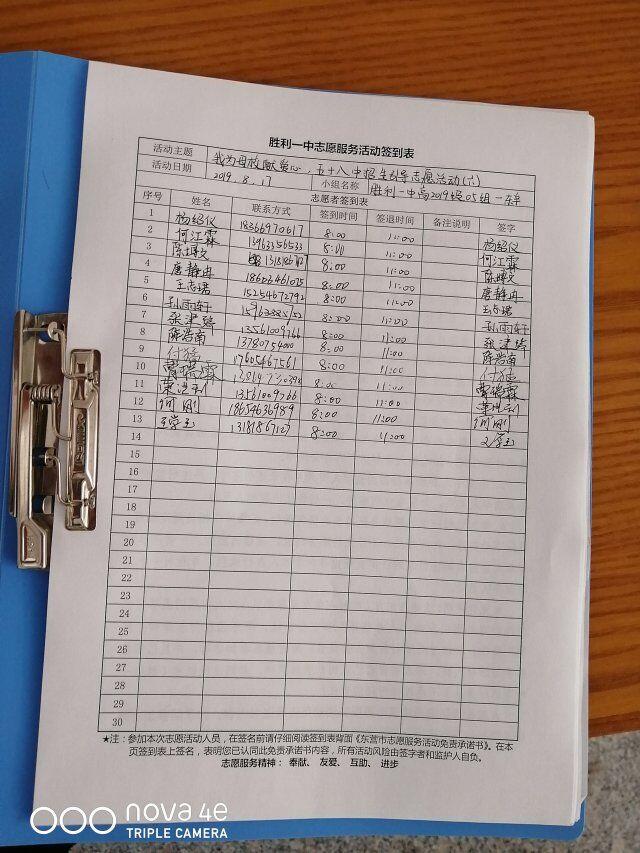 胜利一中志愿服务活动签到表
活动主题 我为母校献爱心，五十八中招生引导志愿活动(六)
活动日期 2019.8.17 小组名称 胜利一中高2019级05组一车单
志愿者签到表
序号 姓名 联系方式 签到时间 签退时间 备注说明 签字
1 杨绍仪 18366970617 8:00 11:00 杨绍仪
2 何江霖 13963356533 8:00 11:00 何江霖
3 8:00 11:00
4 唐静冉 8:00 11:00 唐静冉
5 王志珺 15254672792 8:00 11:00 王志珺
6 孙雨轩 8:00 11:00 孙雨轩
7 张津瑞 13561009766 8:00 11:00 张津瑞
8 陈浩南 8:00 11:00 陈浩南
9 付猛 17605467561 8:00 11:00 付猛
10 曹瑞霖 8:00 11:00 曹瑞霖
11 13561009766 8:00 11:00
12 何刚 18654636989 8:00 11:00 何刚
13 13181867127 8:00 11:00
14
15
16
17
18
19
20
21
22
23
24
25
26
27
28
29
30
★注：参加本次志愿活动人员，在签名前请仔细阅读签到表背面《东营市志愿服务活动免责承诺书》。在本
页签到表上签名，表明您已认同此免责承诺书内容，所有活动风险由签字者和监护人自负。
志愿服务精神： 奉献、 友爱、 互助、 进步
nova 4e
TRIPLE CAMERA